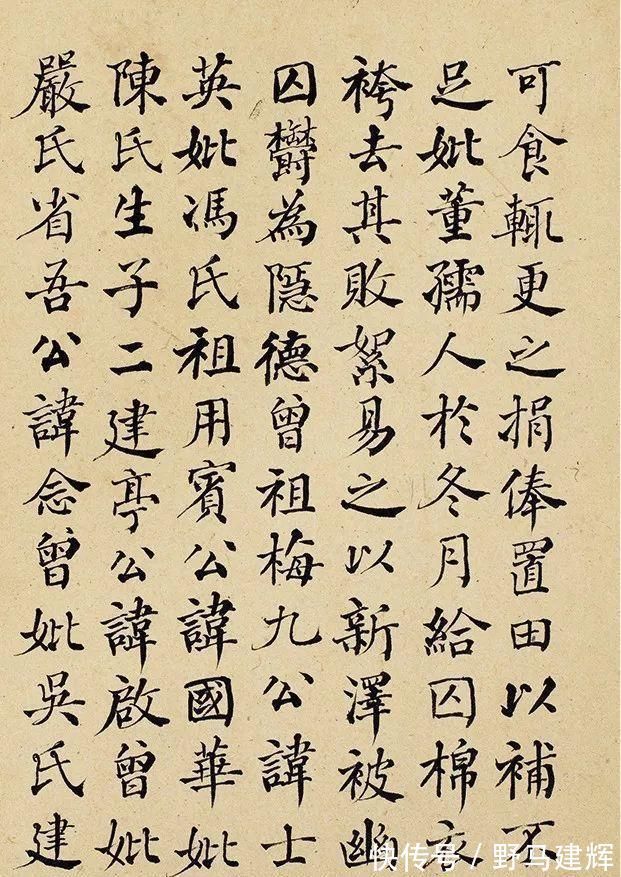 可食輒更之捐俸置田以補不
足妣董孺人於冬月給囚棉衣
袴去其敗絮易之以新澤被幽
囚鬱為隱德曾祖梅九公諱士
英妣馮氏祖用賓公諱國華妣
陳氏生子二建亭公諱啟曾妣
嚴氏省吾公諱念曾妣吳氏建
快传号/野马建辉